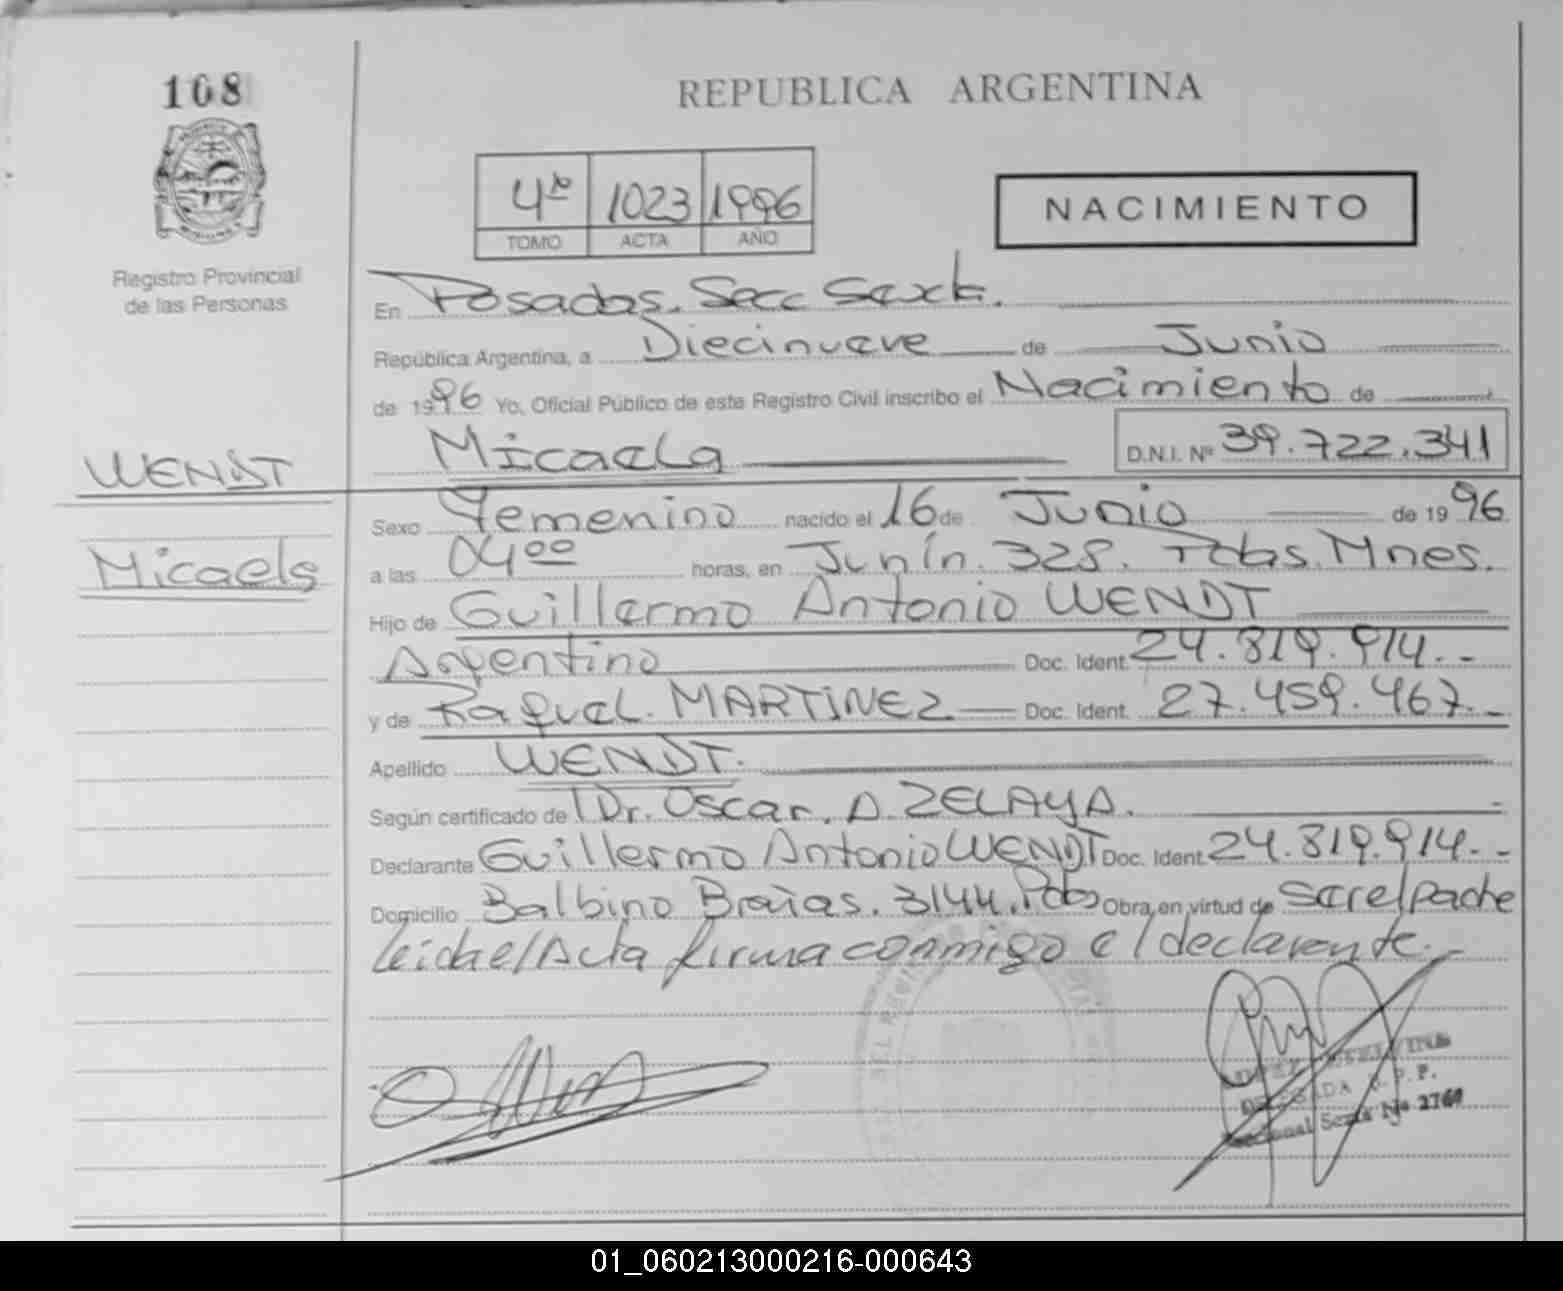 168
REPUBLICA ARGENTINA
4to 1023 1996
TOMO ACTA AÑO
NACIMIENTO
Registro Provincial
de las Personas
En Posadas. Secc Sexta.
República Argentina, a Diecinueve de Junio
de 1996 Yo, Oficial Público de este Registro Civil inscribo el Nacimiento de
WENDT
Micaela D.N.I. Nº 39.722.341
Sexo Femenino nacido el 16 de Junio de 1996
Micaela
a las 04 00 horas, en Junín. 328. Pdas. Mnes.
Hijo de Guillermo Antonio WENDT
Argentino Doc. Ident. 24.819.914.-
y de Raquel. MARTINEZ Doc. Ident. 27.459.467.-
Apellido WENDT.
Según certificado de Dr. Oscar. A. ZELAYA.
Declarante Guillermo Antonio WENDT Doc. Ident. 24.819.914.-
Domicilio Balbino Brañas. 3144. Pdas Obra en virtud de ser el padre
leida el Acta firma conmigo el declarante.-
DELEGADA R.P.P.
Seccional Sexta Nº 2760
01_060213000216-000643